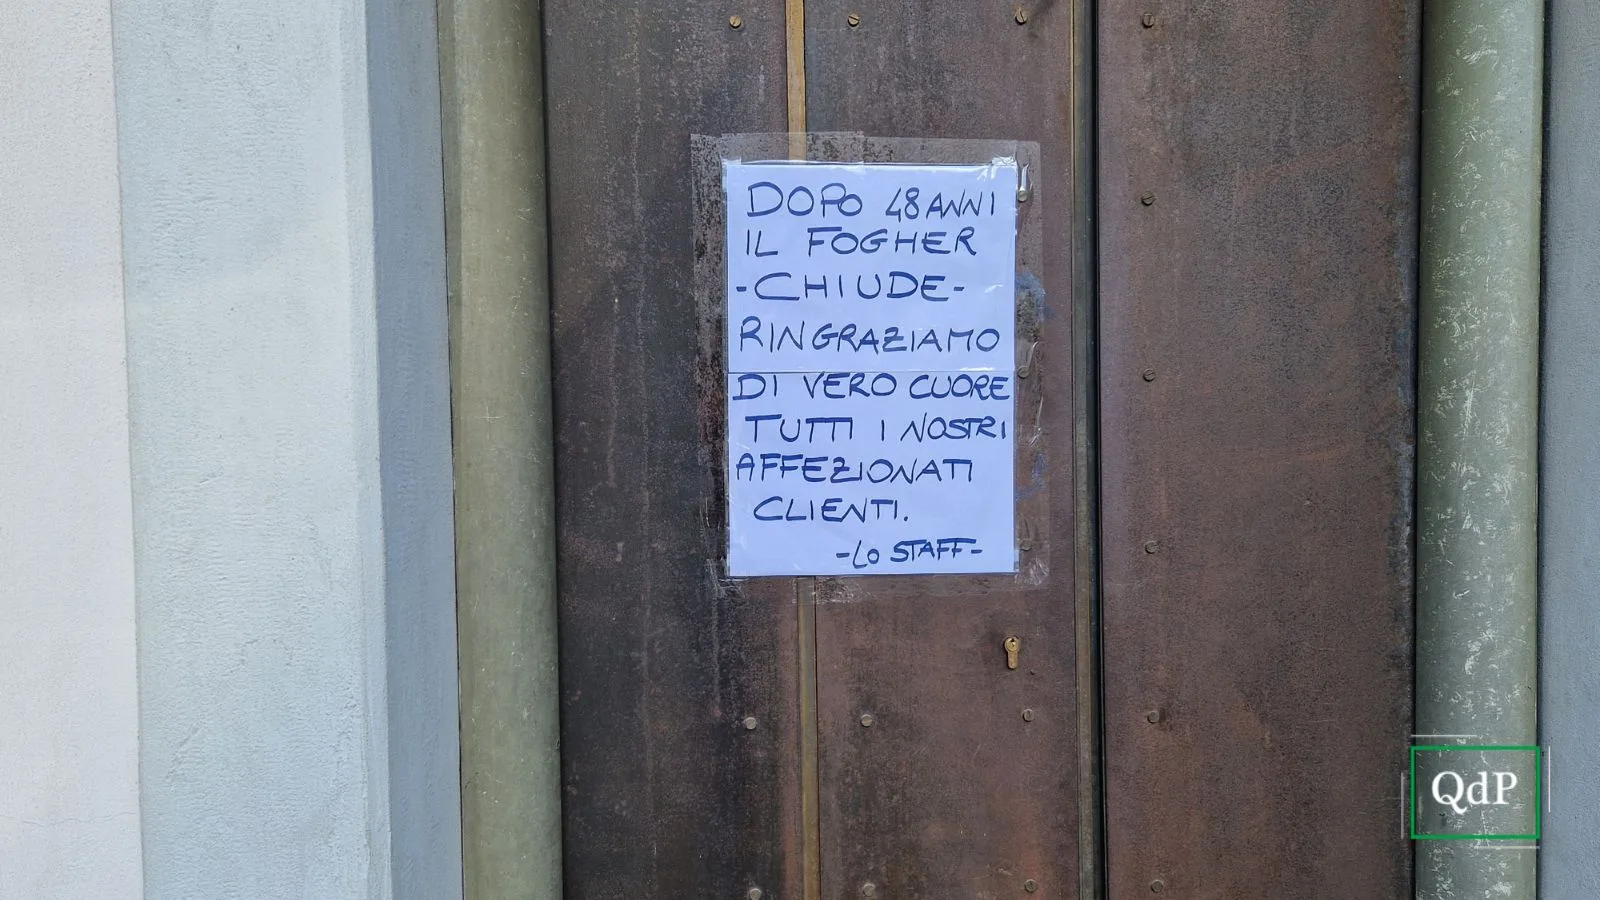 DOPO 48 ANNI
IL FOGHER
-CHIUDE-
RINGRAZIAMO
DI VERO CUORE
TUTTI I NOSTRI
AFFEZIONATI
CLIENTI.
-LO STAFF-
QdP